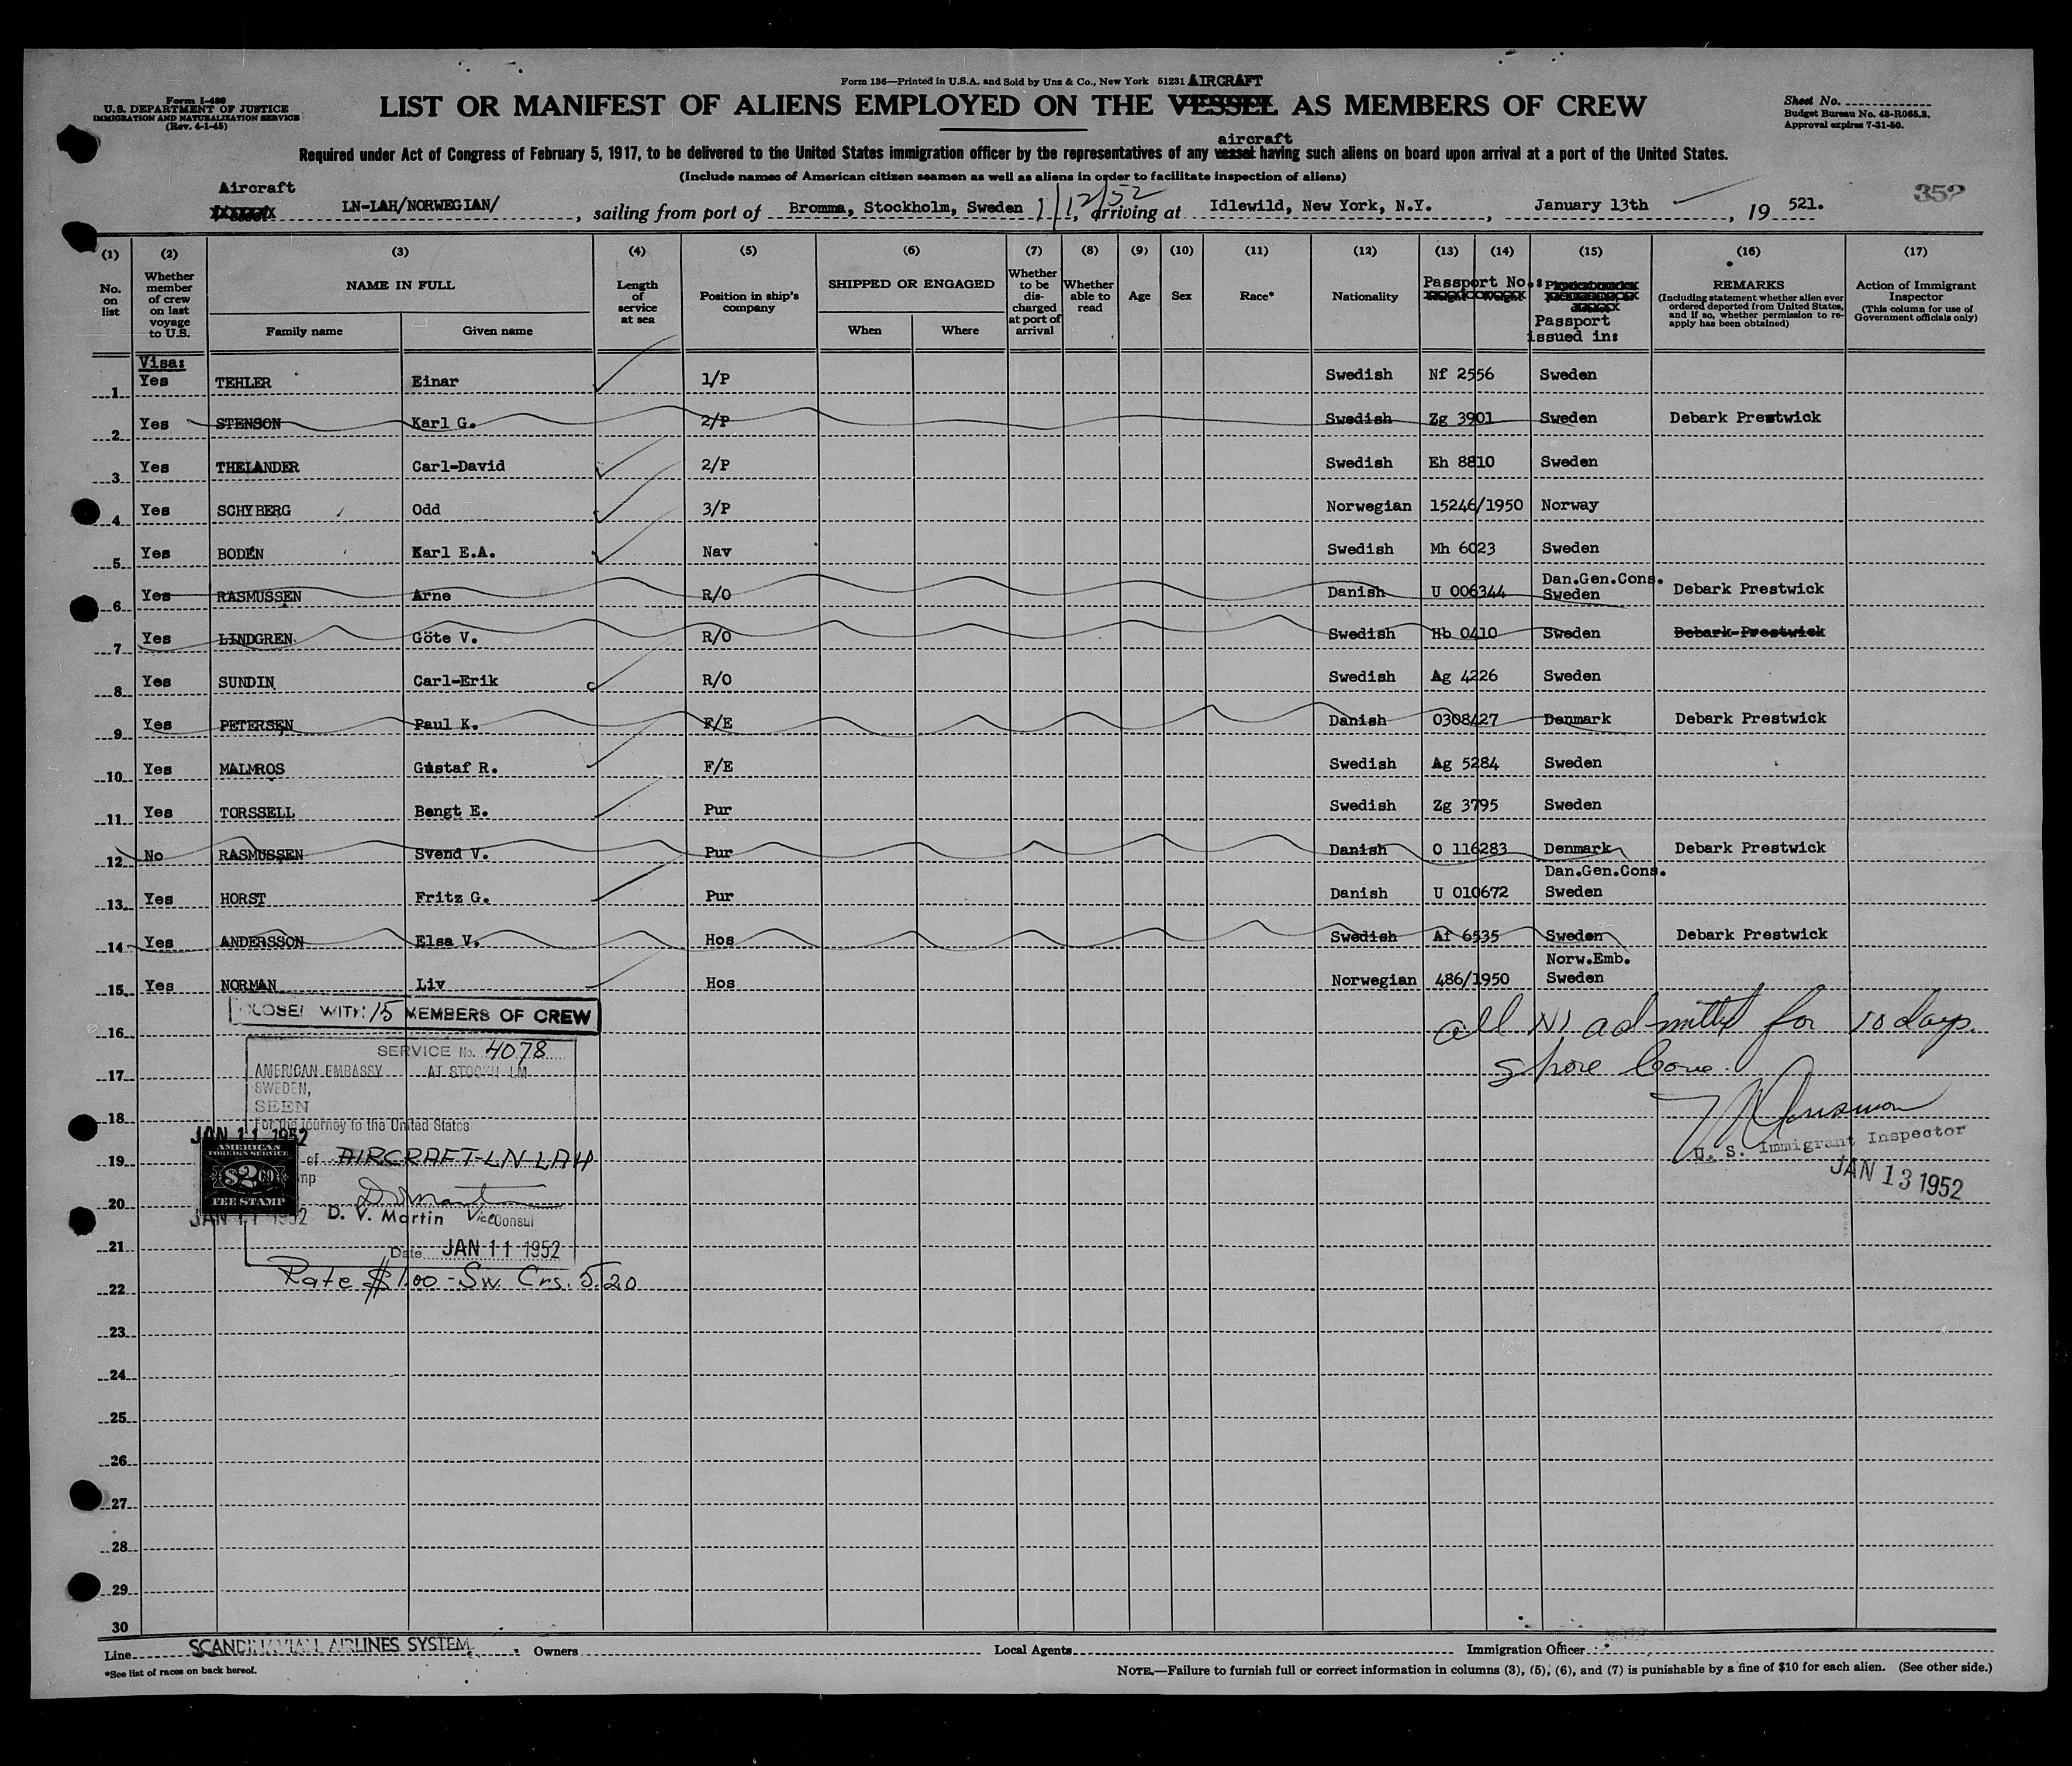 Form 136—Printed in U.S.A. and Sold by Unz & Co., New York 51231 AIRCRAFT
Form I-480
U.S. DEPARTMENT OF JUSTICE
IMMIGRATION AND NATURALIZATION SERVICE
(Rev. 4-1-45)
LIST OR MANIFEST OF ALIENS EMPLOYED ON THE VESSEL AS MEMBERS OF CREW
Sheet No.
Budget Bureau No. 43-R065.3.
Approval expires 7-31-50.
aircraft
Required under Act of Congress of February 5, 1917, to be delivered to the United States immigration officer by the representatives of any vessel having such aliens on board upon arrival at a port of the United States.
(Include names of American citizen seamen as well as aliens in order to facilitate inspection of aliens)
352
Aircraft LN-LAH/NORWEGIAN/, sailing from port of Bromma, Stockholm, Sweden 1/12/52, arriving at Idlewild, New York, N.Y., January 13th, 19 521.
(1) (2) (3) (4) (5) (6) (7) (8) (9) (10) (11) (12) (13) (14) (15) (16) (17)
No. on list
Whether member of crew on last voyage to U.S.
NAME IN FULL
Family name
Given name
Length of service at sea
Position in ship's company
SHIPPED OR ENGAGED
When
Where
Whether to be discharged at port of arrival
Whether able to read
Age
Sex
Race*
Nationality
Passport No.:
Passport issued in:
REMARKS
(Including statement whether alien ever ordered deported from United States, and if so, whether permission to reapply has been obtained)
Action of Immigrant Inspector
(This column for use of Government officials only)
Visa:
1 Yes TEHLER Einar 1/P Swedish Nf 2556 Sweden
2 Yes STENSON Karl G. 2/P Swedish Zg 3901 Sweden Debark Prestwick
3 Yes THELANDER Carl-David 2/P Swedish Eh 8810 Sweden
4 Yes SCHYBERG Odd 3/P Norwegian 15246/1950 Norway
5 Yes BODÉN Karl E.A. Nav Swedish Mh 6023 Sweden
6 Yes RASMUSSEN Arne R/O Danish U 006344 Dan.Gen.Cons. Sweden Debark Prestwick
7 Yes LINDGREN Göte V. R/O Swedish Hb 0410 Sweden Debark-Prestwick
8 Yes SUNDIN Carl-Erik R/O Swedish Ag 4226 Sweden
9 Yes PETERSEN Paul K. F/E Danish 0308427 Denmark Debark Prestwick
10 Yes MALMROS Gustaf R. F/E Swedish Ag 5284 Sweden
11 Yes TORSSELL Bengt E. Pur Swedish Zg 3795 Sweden
12 No RASMUSSEN Svend V. Pur Danish O 116283 Denmark Debark Prestwick
13 Yes HORST Fritz G. Pur Danish U 010672 Dan.Gen.Cons. Sweden
14 Yes ANDERSSON Elsa V. Hos Swedish Af 6535 Sweden Debark Prestwick
15 Yes NORMAN Liv Hos Norwegian 486/1950 Norw.Emb. Sweden
CLOSED WITH 15 MEMBERS OF CREW
16
all admitted for 10 days
shore leave.
SERVICE No. 4078
AMERICAN EMBASSY AT STOCKHOLM
17
SWEDEN,
SEEN
18
For the journey to the United States
JAN 11 1952
U. S. Immigrant Inspector
JAN 13 1952
19
of AIRCRAFT-LN-LAH
AMERICAN
FOREIGN SERVICE
$2.00
FEE STAMP
20
JAN 11 1952
D. V. Martin Vice Consul
21
Date JAN 11 1952
Rate $1.00 - Sw. Crs. 5.20
22
23
24
25
26
27
28
29
30
Line SCANDINAVIAN AIRLINES SYSTEM Owners Local Agents Immigration Officer
*See list of races on back hereof.
NOTE.—Failure to furnish full or correct information in columns (3), (5), (6), and (7) is punishable by a fine of $10 for each alien. (See other side.)